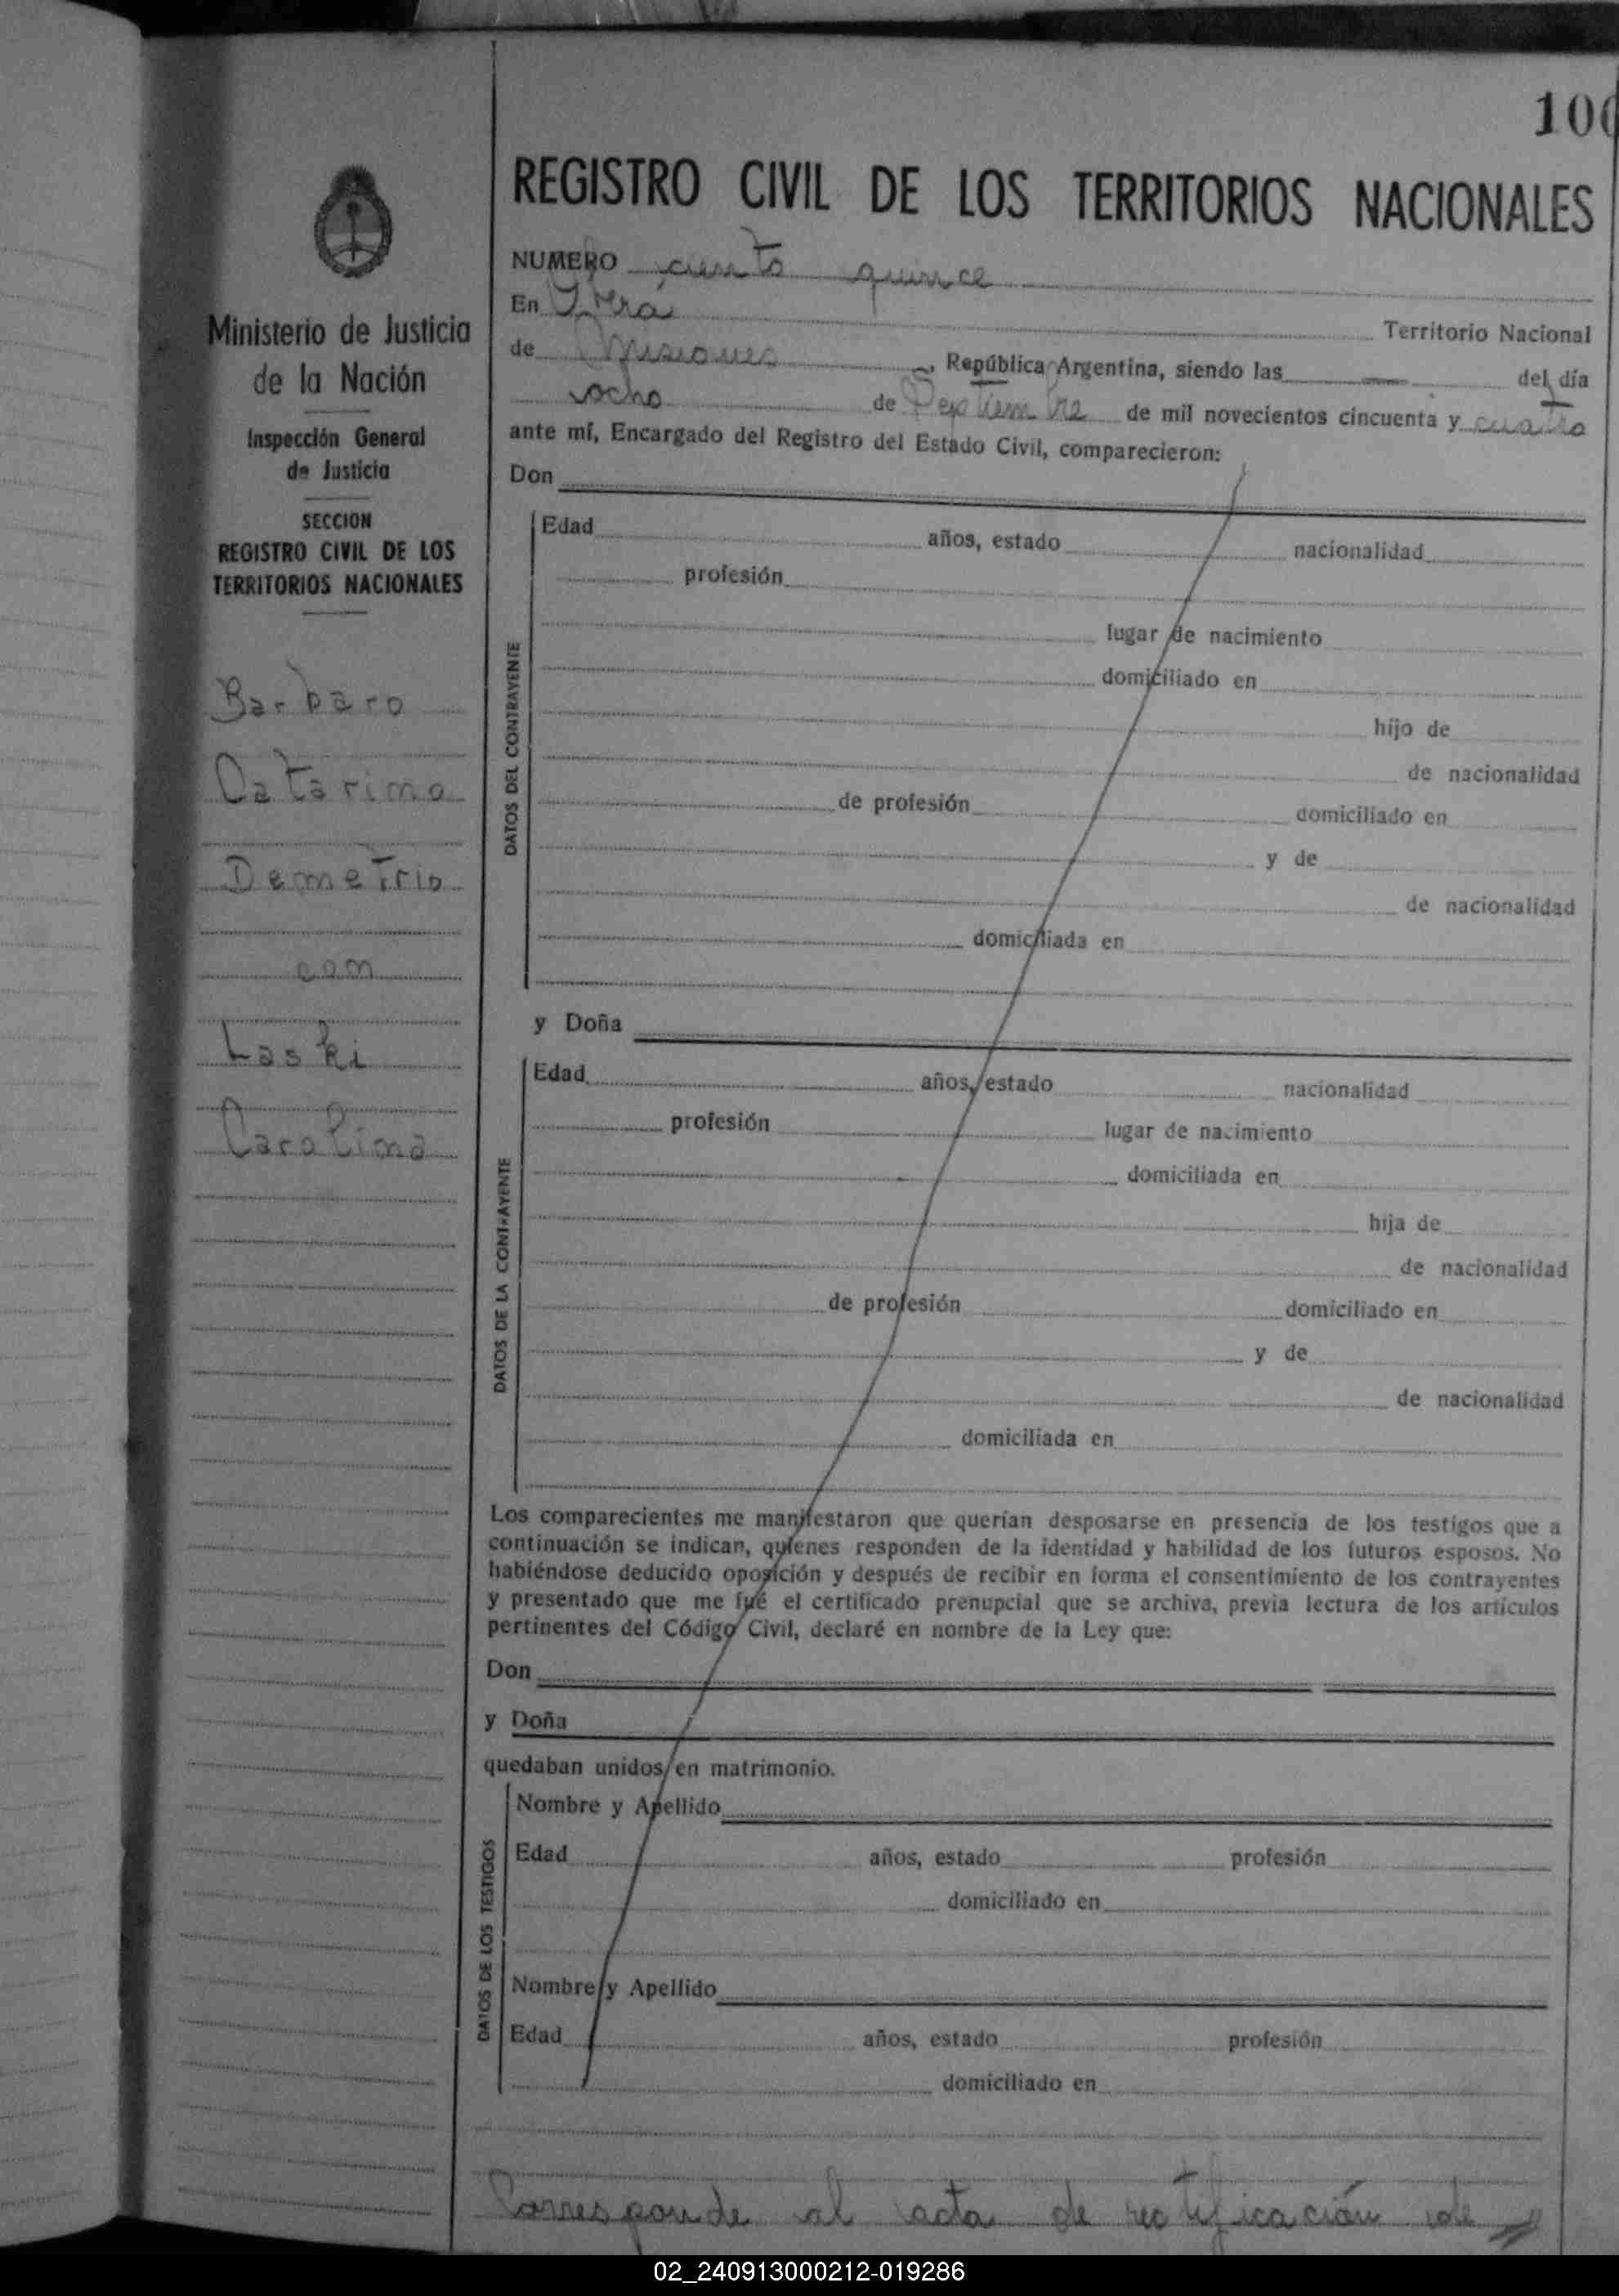 100
REGISTRO CIVIL DE LOS TERRITORIOS NACIONALES
NUMERO ciento quince
En Oberá Territorio Nacional
de Misiones, República Argentina, siendo las — del día
ocho de Septiembre de mil novecientos cincuenta y cuatro
ante mí, Encargado del Registro del Estado Civil, comparecieron:
Don
Ministerio de Justicia
de la Nación
Inspección General
de Justicia
SECCION
REGISTRO CIVIL DE LOS
TERRITORIOS NACIONALES
Barbaro
Catarino
Demetrio
con
Laski
Carolina
DATOS DEL CONTRAYENTE
Edad años, estado nacionalidad
profesión
lugar de nacimiento
domiciliado en
hijo de
de nacionalidad
de profesión domiciliado en
y de
de nacionalidad
domiciliada en
y Doña
DATOS DE LA CONTRAYENTE
Edad años, estado nacionalidad
profesión lugar de nacimiento
domiciliada en
hija de
de nacionalidad
de profesión domiciliado en
y de
de nacionalidad
domiciliada en
Los comparecientes me manifestaron que querían desposarse en presencia de los testigos que a
continuación se indican, quienes responden de la identidad y habilidad de los futuros esposos. No
habiéndose deducido oposición y después de recibir en forma el consentimiento de los contrayentes
y presentado que me fué el certificado prenupcial que se archiva, previa lectura de los artículos
pertinentes del Código Civil, declaré en nombre de la Ley que:
Don
y Doña
quedaban unidos en matrimonio.
DATOS DE LOS TESTIGOS
Nombre y Apellido
Edad años, estado profesión
domiciliado en
Nombre y Apellido
Edad años, estado profesión
domiciliado en
Corresponde al acta de rectificación de
02_240913000212-019286